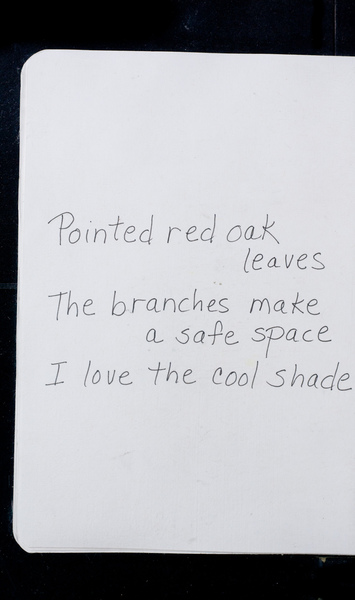 Pointed red oak
leaves
The branches make
a safe space
I love the cool shade